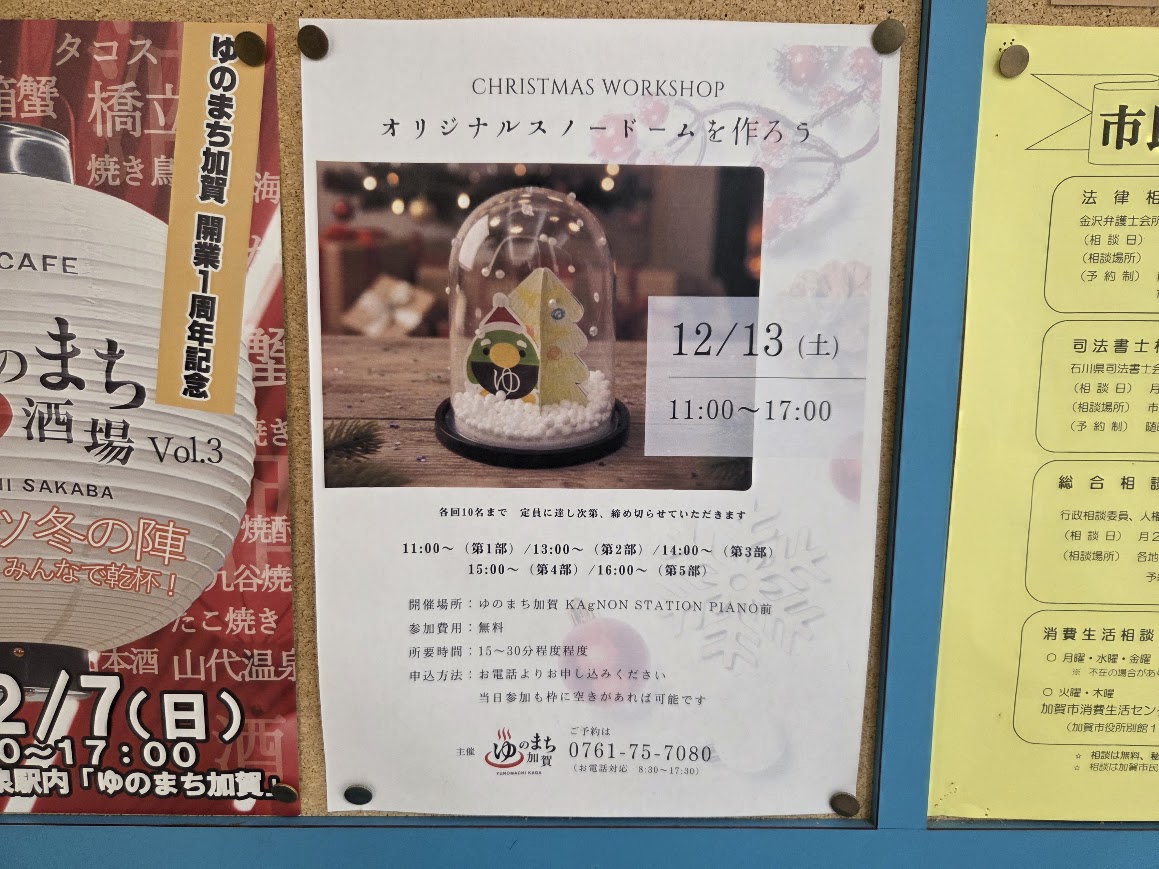 タコス
箱蟹
橋立
焼き鳥
海
ゆのまち加賀 開業1周年記念
CAFE
のまち
酒場 Vol.3
HI SAKABA
蟹
焼き
焼酎
ツ冬の陣
みんなで乾杯！
九谷焼
たこ焼き
本酒 山代温泉
酒
2/7(日)
0～17：00
泉駅内「ゆのまち加賀」
CHRISTMAS WORKSHOP
オリジナルスノードームを作ろう
ゆ
12/13 (土)
11:00～17:00
各回10名まで 定員に達し次第、締め切らせていただきます
11:00～（第1部）/13:00～（第2部）/14:00～（第3部）
15:00～（第4部）/16:00～（第5部）
開催場所：ゆのまち加賀 KAgNON STATION PIANO前
参加費用：無料
所要時間：15～30分程度程度
申込方法：お電話よりお申し込みください
当日参加も枠に空きがあれば可能です
主催
ゆのまち加賀
YUNOMACHI KAGA
ご予約は
0761-75-7080
（お電話対応 8:30～17:30）
市
法律相
金沢弁護士会所
（相談日）
（相談場所）
（予約制）
司法書士相
石川県司法書士会
（相談日） 月
（相談場所） 市
（予約制） 随
総合相談
行政相談委員、人権
（相談日） 月2
（相談場所） 各地
予
消費生活相談
○ 月曜・水曜・金曜
※ 不在の場合があ
○ 火曜・木曜
加賀市消費生活セン
（加賀市役所別館1
☆ 相談は無料、秘
☆ 相談は加賀市民